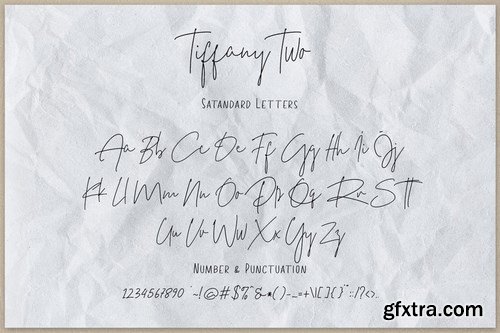 Tiffany Two
Satandard Letters
Aa Bb Cc Dd Ee Ff Gg Hh Ii Jj
Kk Ll Mm Nn Oo Pp Qq Rr Ss Tt
Uu Vv Ww Xx Yy Zz
Number & Punctuation
1234567890 `~!@#$%^&*()-_=+\|[]{}¨::/?<>.
gfxtra.com